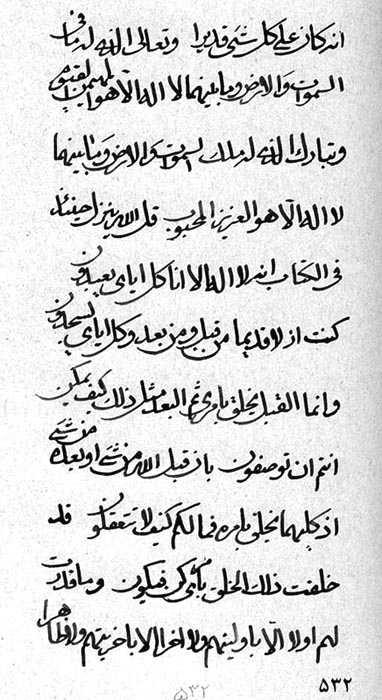 انه كان على كل شئ قديرا وتعالى الذي له ما في
السموات والارض وما بينهما لا اله الا هو المهيمن القيوم
وتبارك الذي له ملك السموات والارض وما بينهما
لا اله الا هو العزيز المحبوب قل الله ينزل حينئذ
في الكتاب انه لا اله الا انا كل اياي يعبدون
كنت ازلا قديما من قبل ومن بعد وكل اياي يسجدون
وانما القبل يخلق بامري ثم البعد مثل ذلك كيف يمكن
انتم ان توصفون بان قبل الله من شئ او بعده من شئ
اذ كليهما يخلق بامره فما لكم كيف لا تتعقلون قد
خلقت ذلك الخلق بامري كن فيكون وما قدرت
لهم اولا الا باوليتهم ولا اخرا الا باخريتهم ولا ظاهرا
٥٣٢
٥٣٢